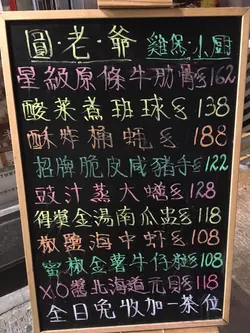 圓·老·爺 雞煲·小廚
星級原條牛肋骨 162
酸菜煮班球 138
酥炸桶蠔 188
招牌脆皮咸豬手 122
豉汁蒸大鱔 128
得獎金湯南瓜盅 118
椒鹽海中蝦 108
蜜椒金薯牛仔粒 108
XO醬北海道元貝 118
全日免收加一茶位